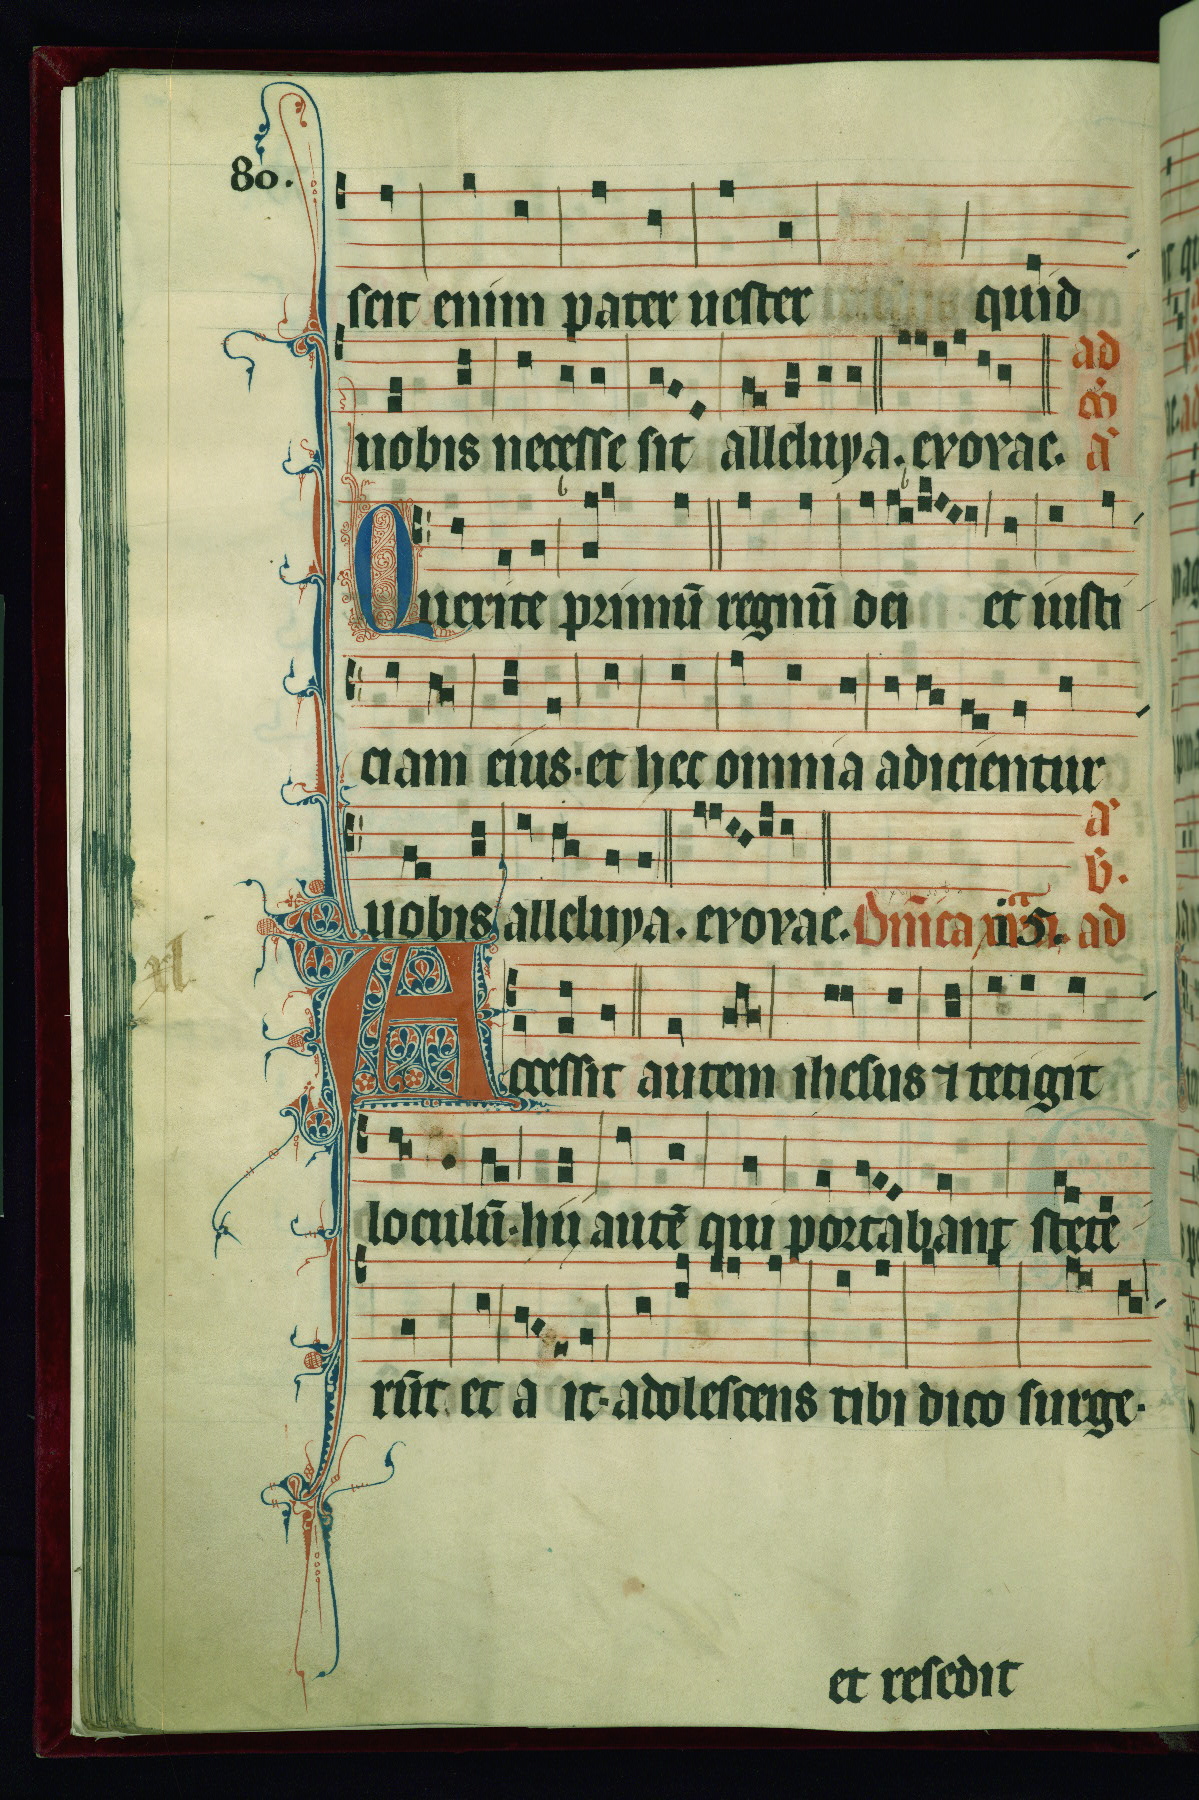 80.
scit enim pater uester quid
uobis necesse sit alleluya. evovae. ad
m̄
a
Querite primū regnū dei et iusti
ciam eius. et hec omnia adicientur
a
b.
uobis alleluya. evovae. Dn̄ica 15. ad
Accessit autem ihesus ⁊ tetigit
loculū. hij autē qui portabant stete
rūt et a it. adolescens tibi dico surge.
et resedit